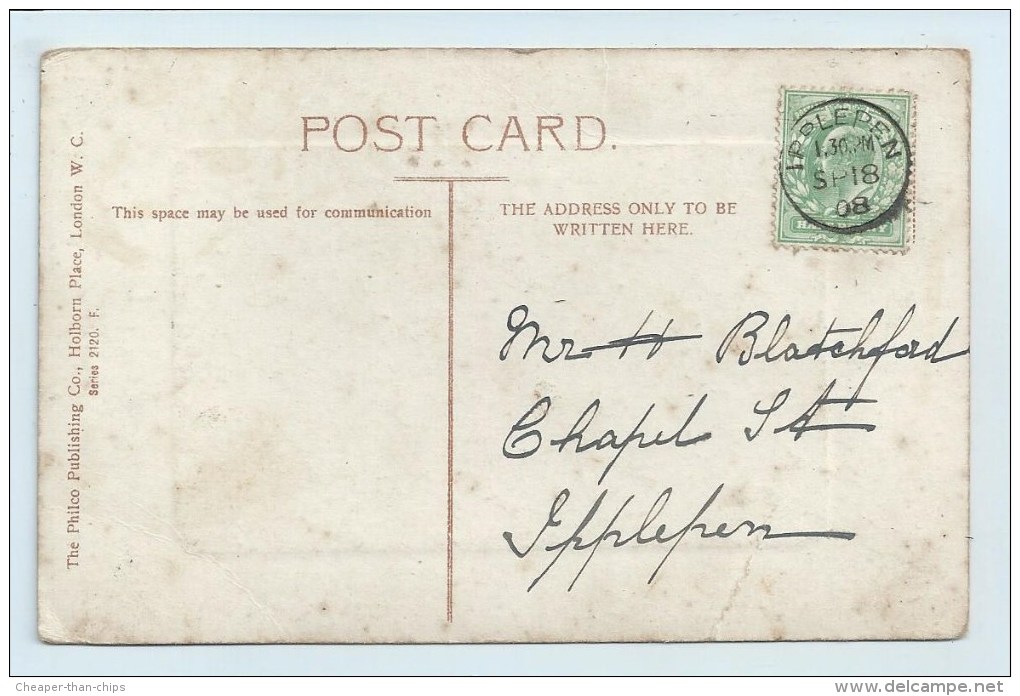 POST CARD.
This space may be used for communication
THE ADDRESS ONLY TO BE
WRITTEN HERE.
IPPLEPEN
1.30 PM
SP 18
08
Mr H Blatchford
Chapel St
Ipplepen
The Philco Publishing Co., Holborn Place, London W. C.
Series 2120. F.
Cheaper-than-chips
www.delcampe.net